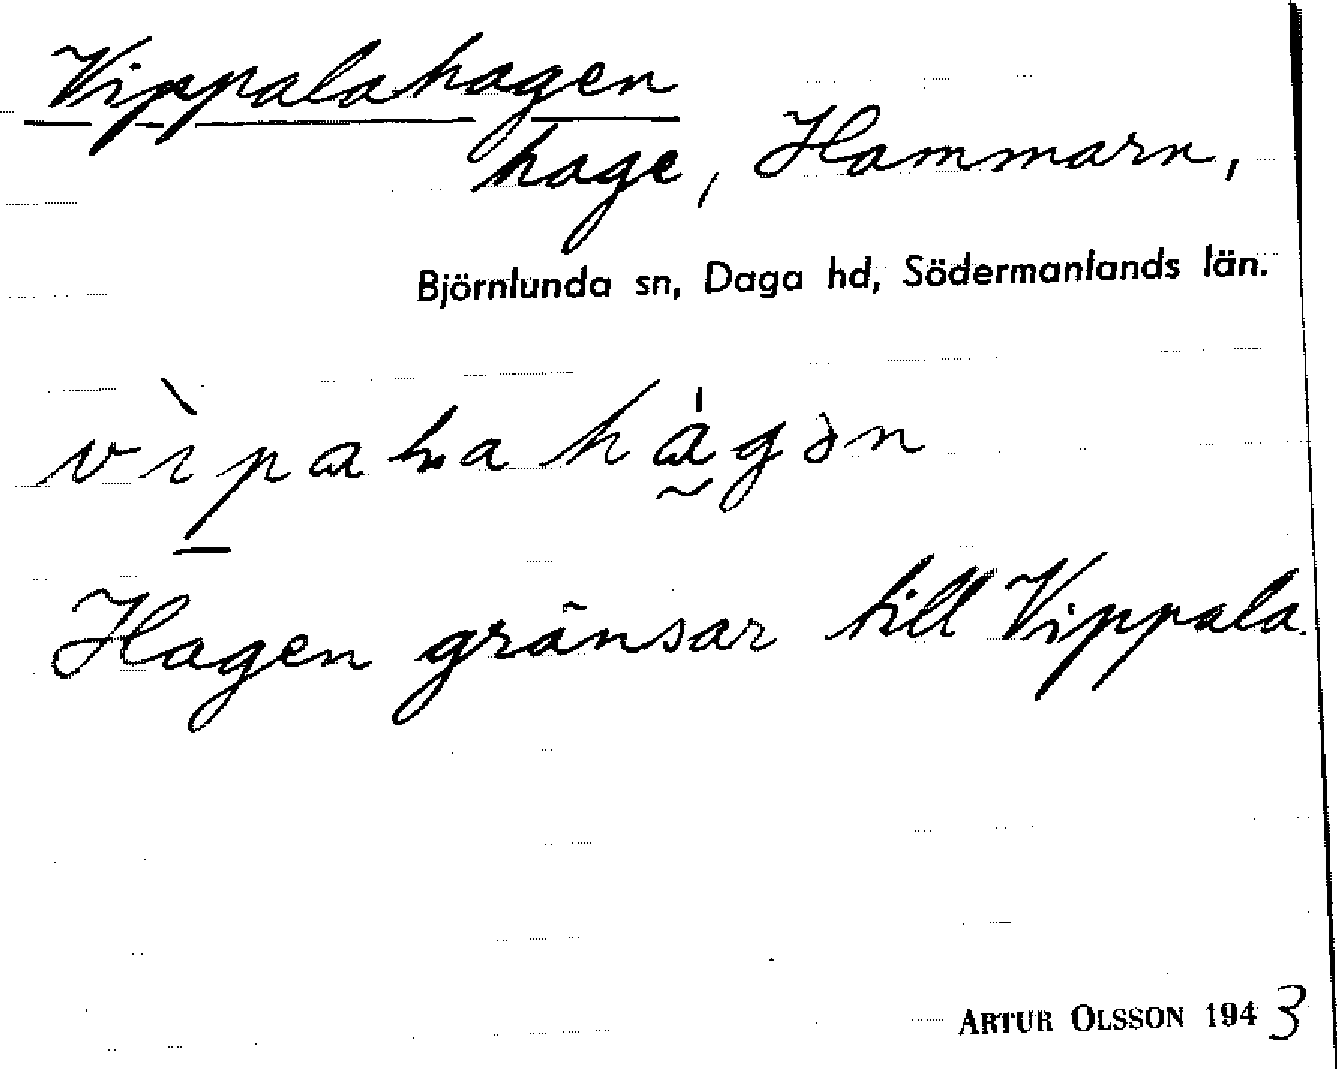 Vippalahagen
hage, Hammarn,
Björnlunda sn, Daga hd, Södermanlands län.
Hagen gränsar till Vippala.
ARTUR OLSSON 1943